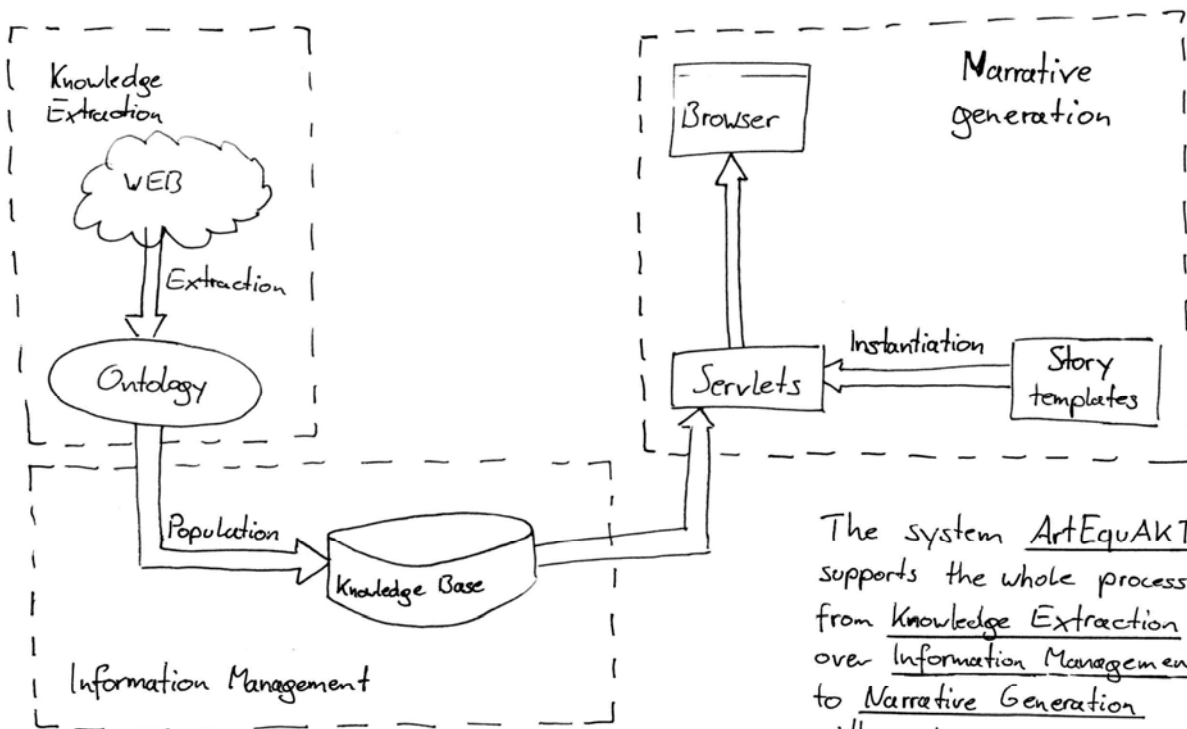 Knowledge
Extraction
WEB
Extraction
Ontology
Population
Knowledge Base
Information Management
Narrative
generation
Browser
Servlets
Instantiation
Story
templates
The system ArtEquAKT
supports the whole process
from Knowledge Extraction
over Information Managemen
to Narrative Generation